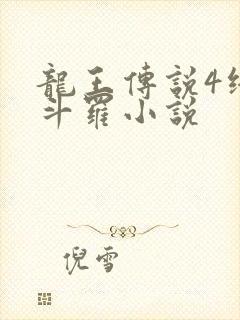 龍王傳說4
斗羅小說
倪雪